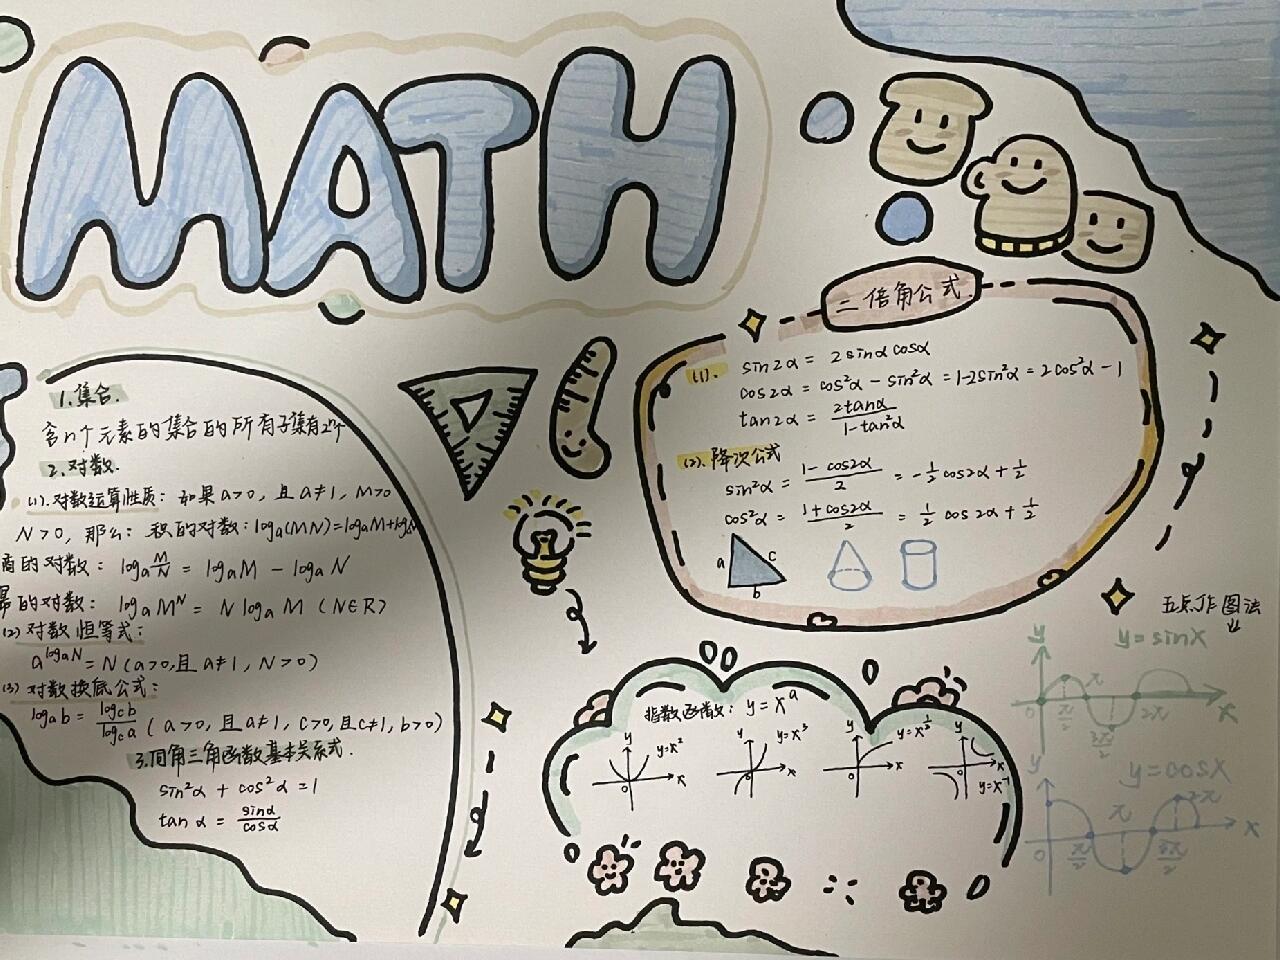 MATH
1.集合.
含n个元素的集合的所有子集有2ⁿ个
2.对数.
(1).对数运算性质：如果a>0，且a≠1，M>0
N>0，那么：积的对数：logₐ(MN)=logₐM+logₐN
商的对数：logₐ M/N = logₐM − logₐN
幂的对数：logₐMᴺ = N logₐM (N∈R)
(2)对数恒等式：
a^logₐN = N (a>0,且 a≠1, N>0)
(3)对数换底公式：
logₐb = log_c b / log_c a (a>0, 且a≠1, c>0,且c≠1, b>0)
3.同角三角函数基本关系式.
sin²α + cos²α = 1
tan α = sinα/cosα
二倍角公式.
(1). sin2α = 2sinα cosα
cos2α = cos²α − sin²α = 1-2sin²α = 2cos²α − 1
tan2α = 2tanα/1-tan²α
(2).降次公式
sin²α = 1-cos2α/2 = -1/2 cos2α + 1/2
cos²α = 1+cos2α/2 = 1/2 cos2α + 1/2
a c
b
指数函数：y = xᵃ
y y=x² x 0
y y=x³ x 0
y y=x^1/2 x 0
y x 0 y=x⁻¹
五点作图法
y y=sinx
0 π/2 π 3π/2 2π x
y y=cosx
0 π/2 π 3π/2 2π x